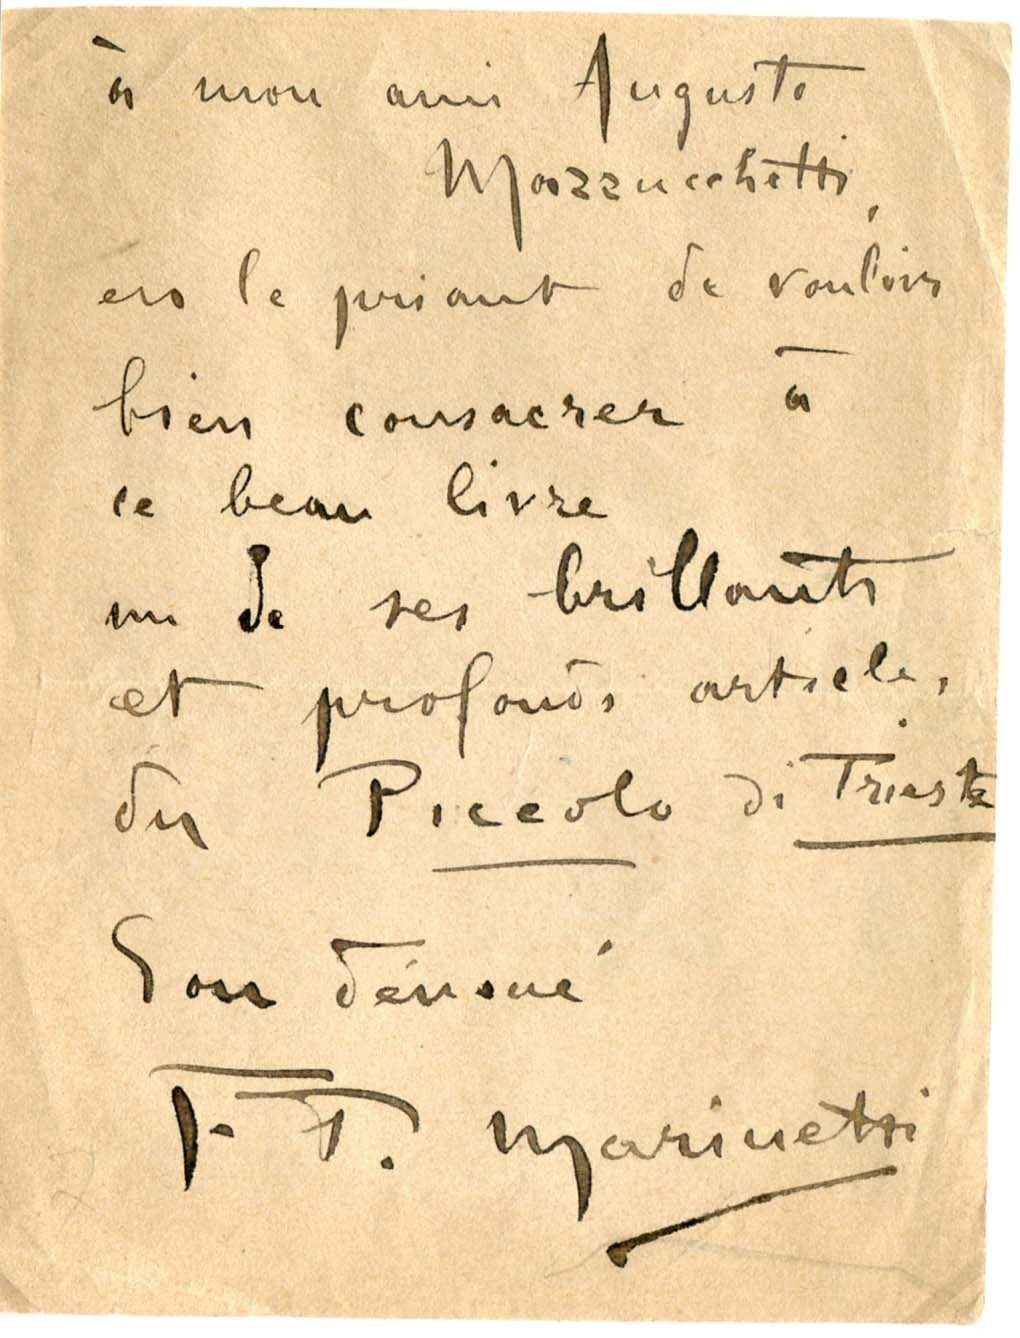 à mon ami Augusto
Mazzucchetti,
en le priant de vouloir
bien consacrer à
ce beau livre
un de ses brillants
et profonds articles
du Piccolo di Trieste
Son dévoué
F. T. Marinetti